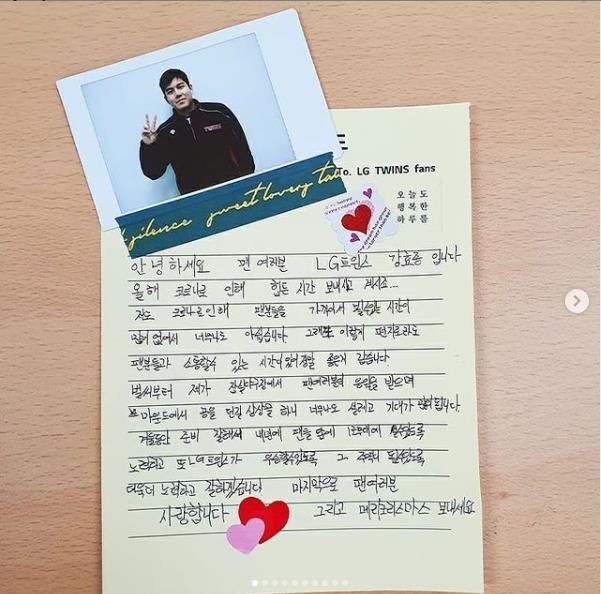 To. LG TWINS fans
silence sweet lovery
오늘도
행복한
하루를
안녕하세요 팬 여러분 LG트윈스 강효종 입니다
올해 코로나로 인해 힘든 시간 보내시고 계시죠...
저도 코로나로인해 팬분들을 가까이서 뵐수있는 시간이
많이 없어서 너무나도 아쉽습니다 그래도 이렇게 편지로라도
팬분들과 소통할수 있는 시간이 있어 정말 좋은거 같습니다
벌써부터 제가 잠실야구장에서 팬여러분의 응원을 받으며
마운드에서 공을 던질 상상을 하니 너무나도 설레고 기대가 많이 됩니다
겨울동안 준비 잘해서 내년에 팬들 앞에 1군무대에 설수있도록
노력하고 또 LG트윈스가 우승할수있도록 그 주역이 될수있도록
더욱더 노력하고 잘하겠습니다 마지막으로 팬여러분
사랑합니다 그리고 메리크리스마스 보내세요